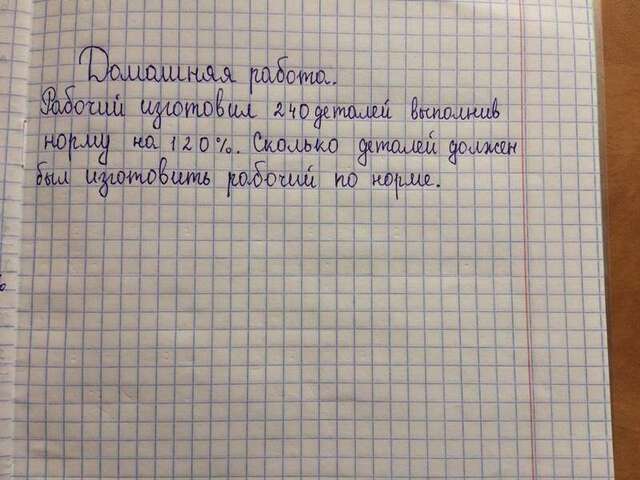 Домашняя работа.
Рабочий изготовил 240 деталей выполнив
норму на 120%. Сколько деталей должен
был изготовить рабочий по норме.